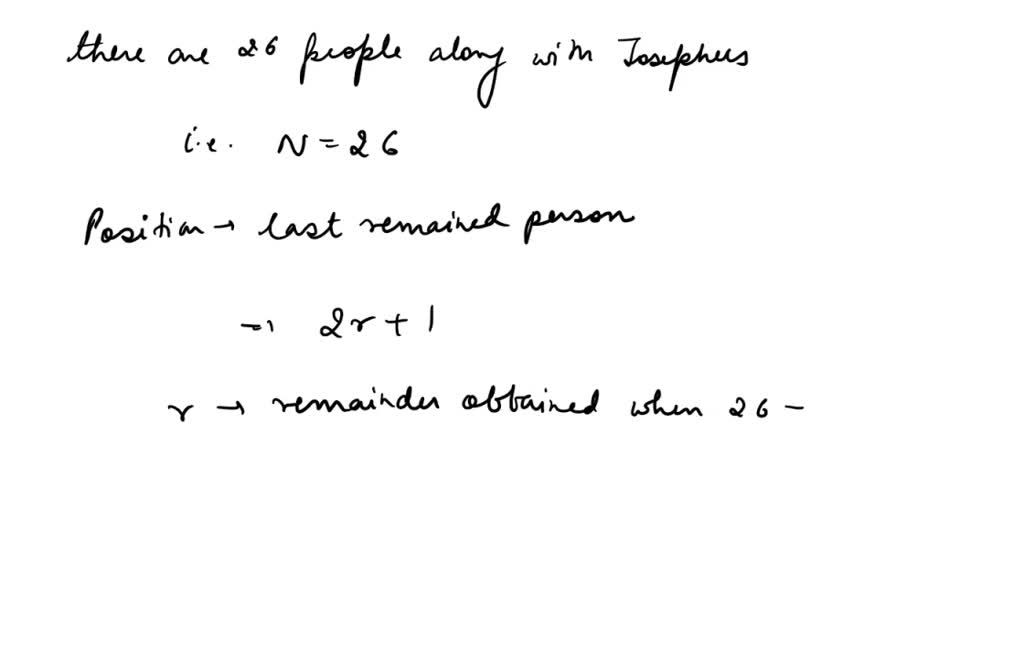 there are 26 people along with Josephus
i.e. N = 26
Position → last remained person
⇒ 2r + 1
r → remainder obtained when 26 –